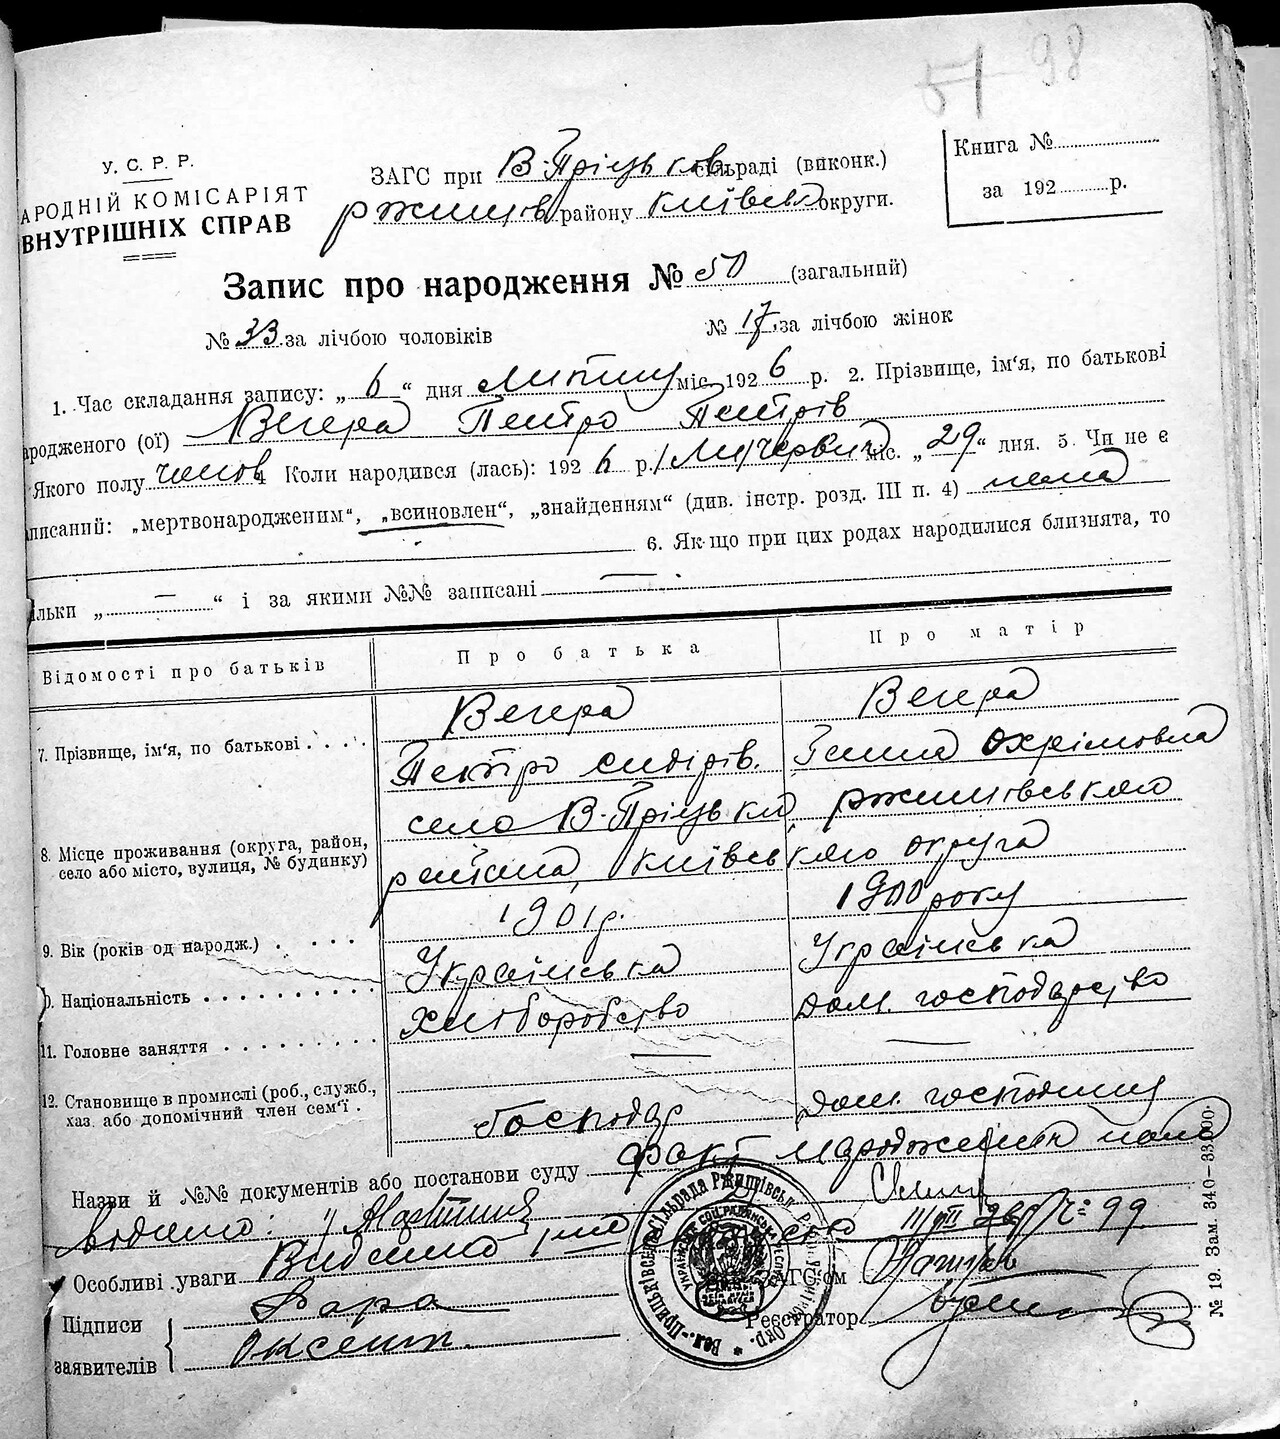 51 98
У. С. Р. Р.
АРОДНІЙ КОМІСАРІЯТ
ВНУТРІШНІХ СПРАВ
ЗАГС при В-Пріцьків. сільраді (виконк.)
Ржищів району Київсько округи.
Книга №
за 192 р.
Запис про народження № 50 (загальний)
№ 33 за лічбою чоловіків № 17 за лічбою жінок
1. Час складання запису: „ 6 “ дня Липня міс. 1926 р. 2. Прізвище, ім'я, по батькові
ародженого (ої) Вегера Петро Петрів
Якого полу чолов 4 Коли народився (лась): 192 6 р. червня міс. „ 29 “ дня. 5. Чи не є
аписаний: „мертвонародженим“, „всиновлен“, „знайденням“ (див. інстр. розд. III п. 4) нема
6. Як-що при цих родах народилися близнята, то
ільки „ — “ і за якими №№ записані —
Відомості про батьків Про батька Про матір
7. Прізвище, ім'я, по батькові Вегера Вегера
Петро Сидорів. Ганна Охрімовна
8. Місце проживання (округа, район, село або місто, вулиця, № будинку) село В-Пріцьки, Ржищівського
района, Київського округа
9. Вік (років од народж.) 1901 р. 1900 року
0. Національність Українська Українська
11. Головне заняття Хліборобство дом. господарство
12. Становище в промислі (роб., служб., хаз. або допомічний член сем'ї . Господар дом. господиня
Назви й №№ документів або постанови суду факт народження
Особливі уваги Видано № 99
Підписи заявителів
Оксент.
Зав. ЗАГС'ом
Реєстратор
Вел.-Прицьківська Сільрада Ржищівськ.
№ 19. Зам. 340—33.000.